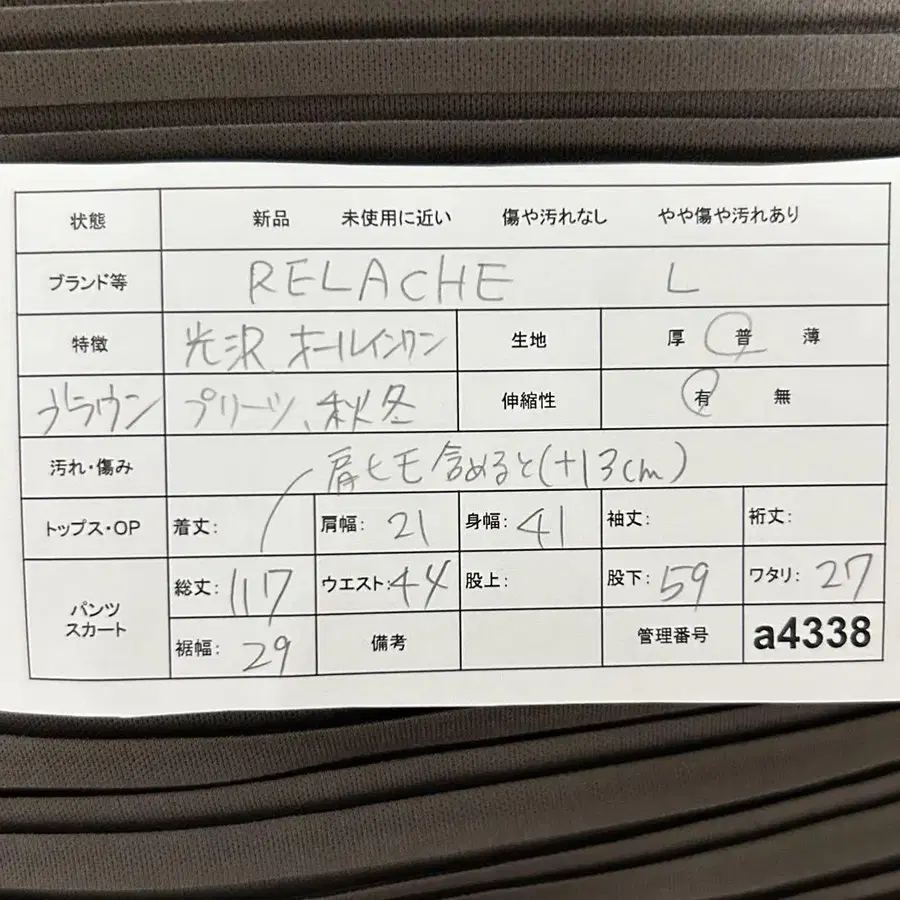 状態 新品 未使用に近い 傷や汚れなし やや傷や汚れあり
ブランド等 RELACHE L
特徴 光沢、オールインワン 生地 厚 普 薄
ブラウン プリーツ、秋冬 伸縮性 有 無
汚れ・傷み 肩ヒモ含めると(+13cm)
トップス・OP 着丈: 肩幅: 21 身幅: 41 袖丈: 裄丈:
パンツ スカート 総丈: 117 ウエスト: 44 股上: 股下: 59 ワタリ: 27
裾幅: 29 備考 管理番号 a4338